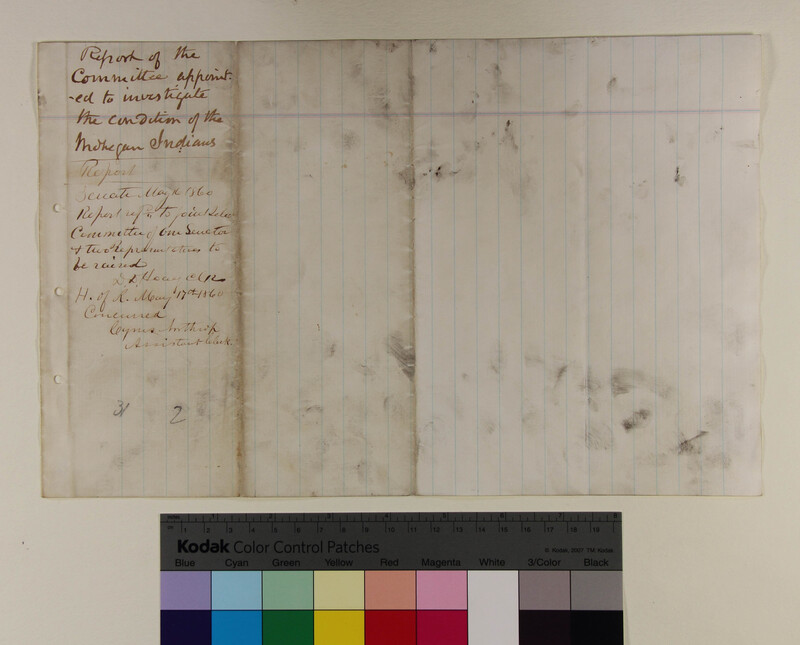 Report of the
Committee appoint-
-ed to investigate
the condition of the
Mohegan Indians
Report
Senate May 1860
Report refd to joint Select
Committee of One Senator
& two Representatives to
be raised
Clk
H. of R. May 17th 1860
Concurred
Cyrus Northrop
Assistant Clerk.
31 2
Kodak Color Control Patches
© Kodak, 2007 TM Kodak
Blue Cyan Green Yellow Red Magenta White 3/Color Black
1 2 3 4 5 6 7 8
1 2 3 4 5 6 7 8 9 10 11 12 13 14 15 16 17 18 19